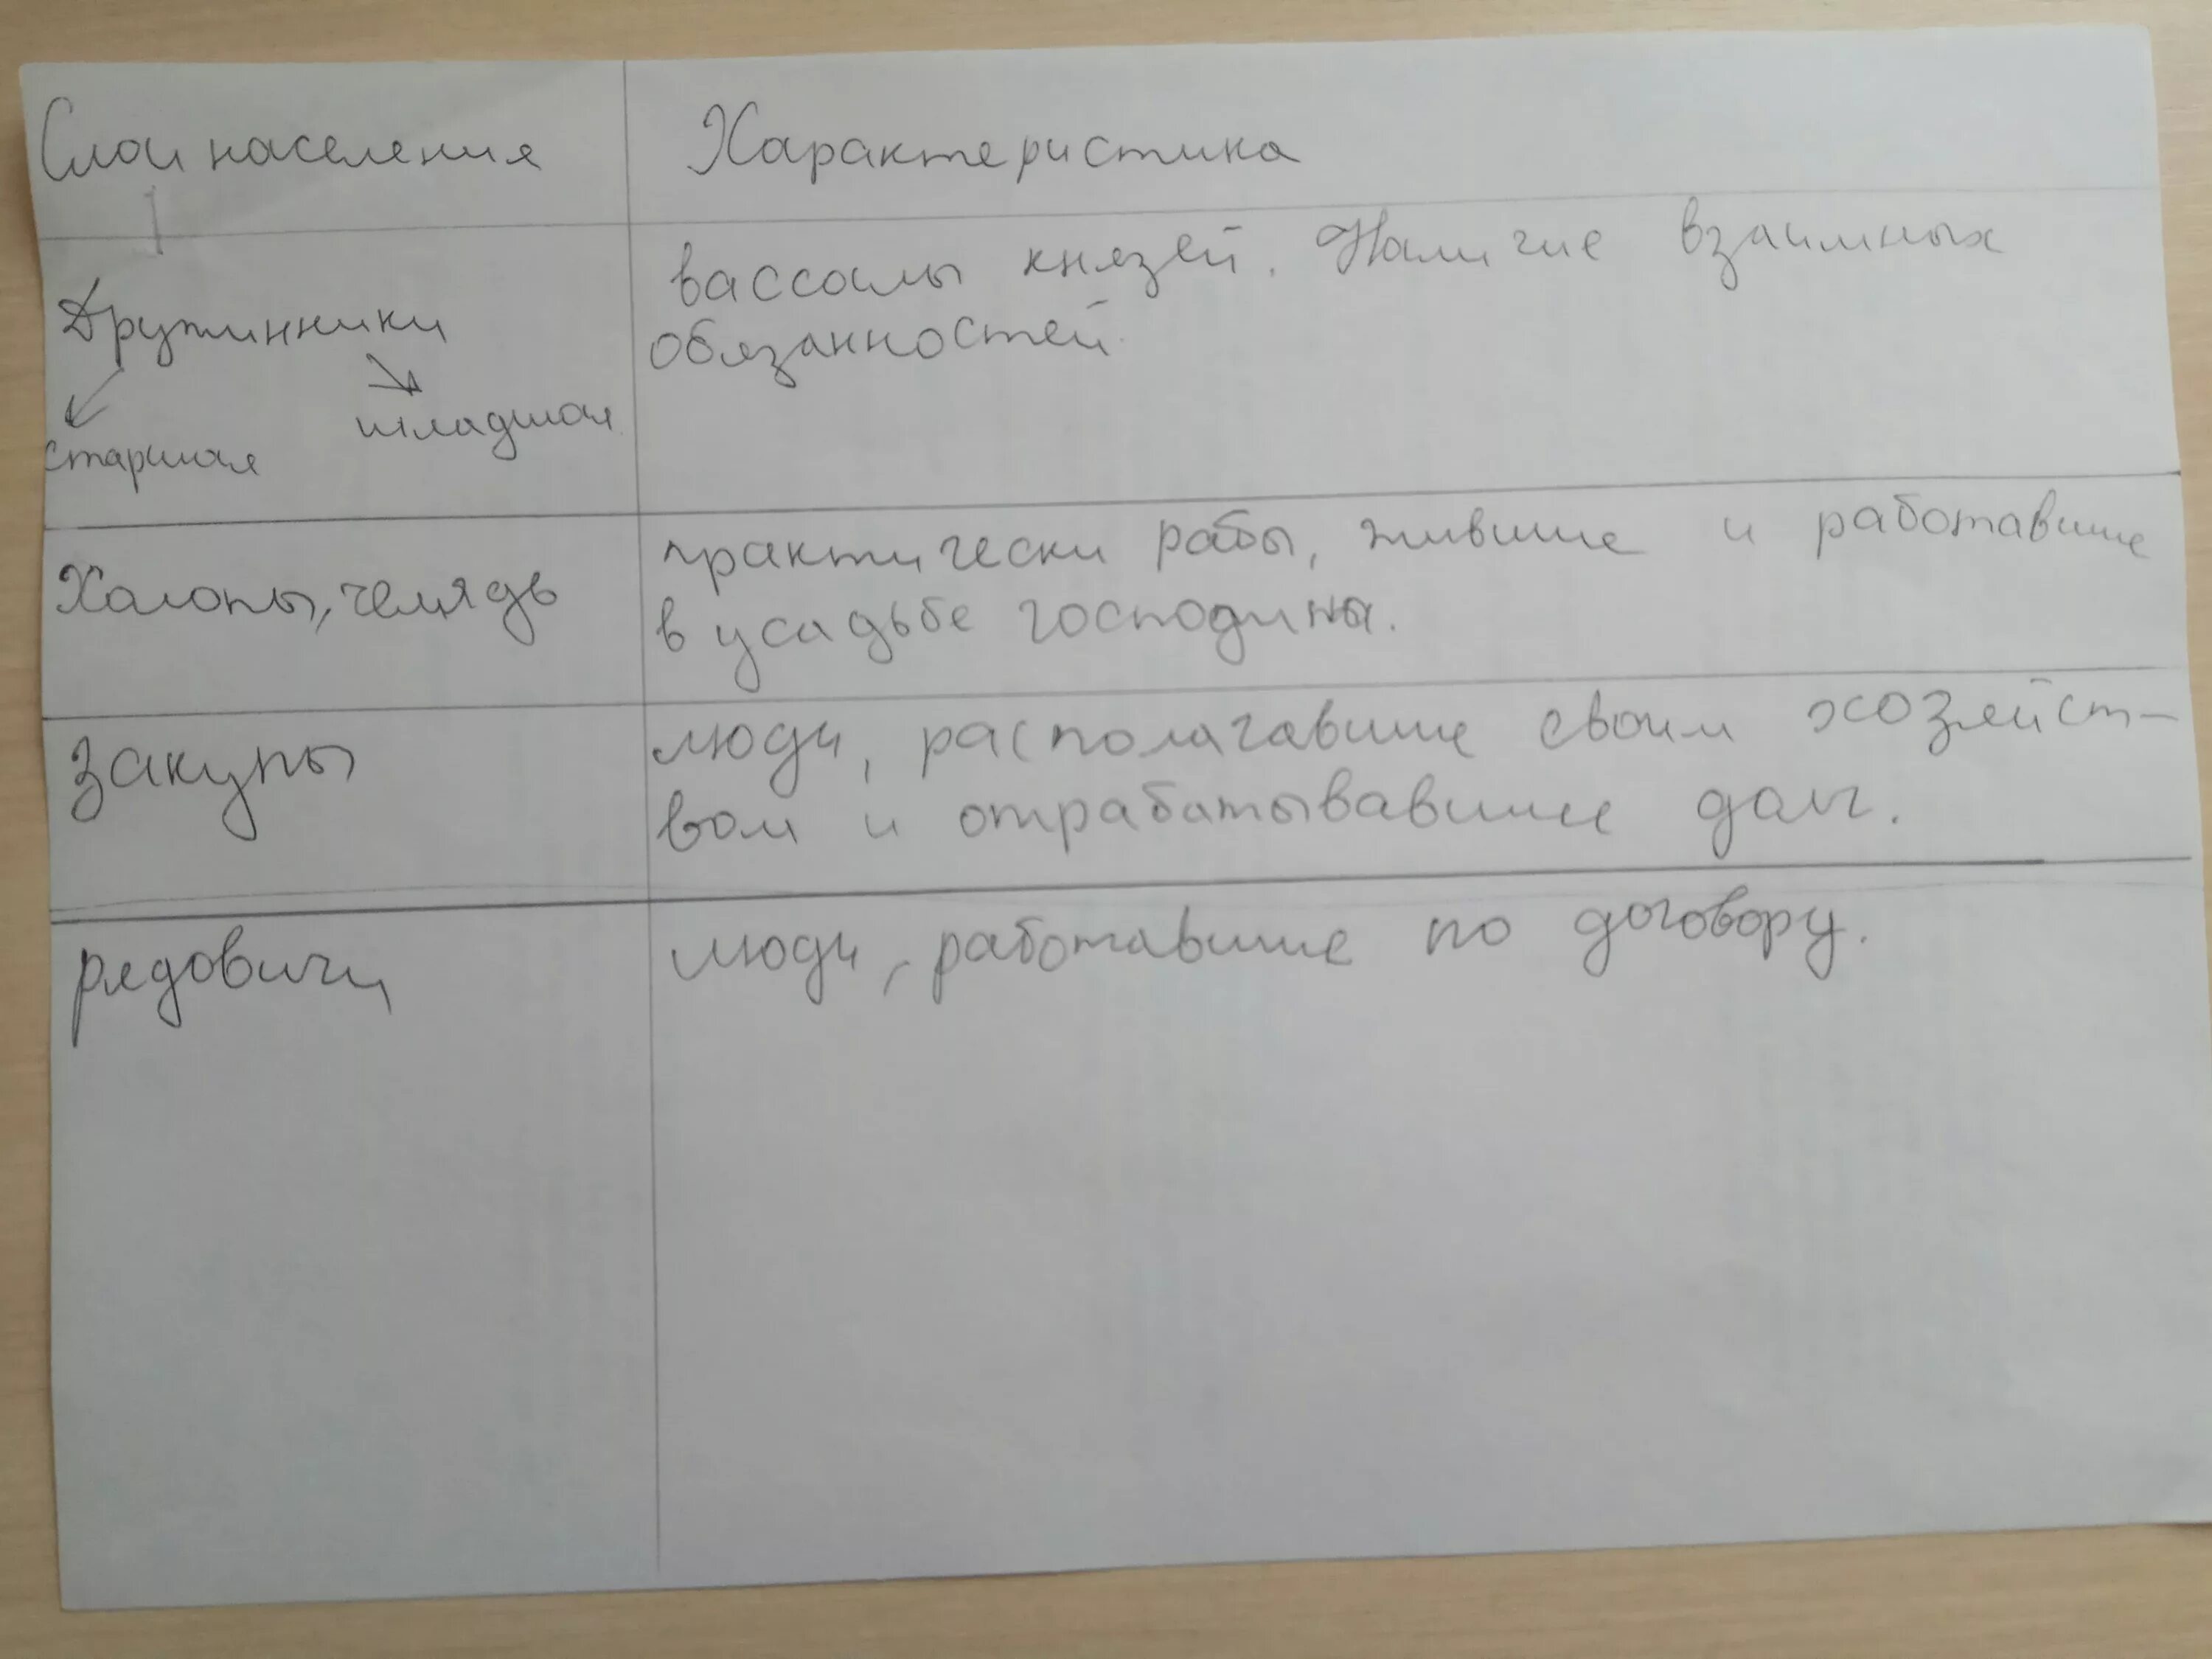 Слои населения
Характеристика
Дружинники
старшая
младшая
вассалы князей. Наличие взаимных
обязанностей.
Холопы, челядь
практически рабы, жившие и работавшие
в усадьбе господины.
Закупы
люди, располагавшие своим хозяйст-
вом и отрабатывавшие долг.
рядовичи
люди, работавшие по договору.